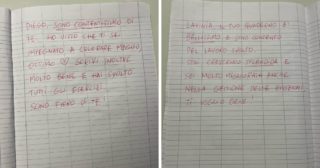 DIEGO, SONO CONTENTISSIMO DI
TE. HO VISTO CHE TI SEI
IMPEGNATO A COLORARE MEGLIO,
SCRIVI INOLTRE
MOLTO BENE E HAI SVOLTO
TUTTI GLI ESERCIZI.
SONO FIERO DI TE!
LAVINIA, IL TUO QUADERNO È
BELLISSIMO E SONO CONTENTO
DEL LAVORO SVOLTO.
STAI CRESCENDO
SEI MOLTO MIGLIORATA ANCHE
NELLA GESTIONE DELLE EMOZIONI.
TI VOGLIO BENE.